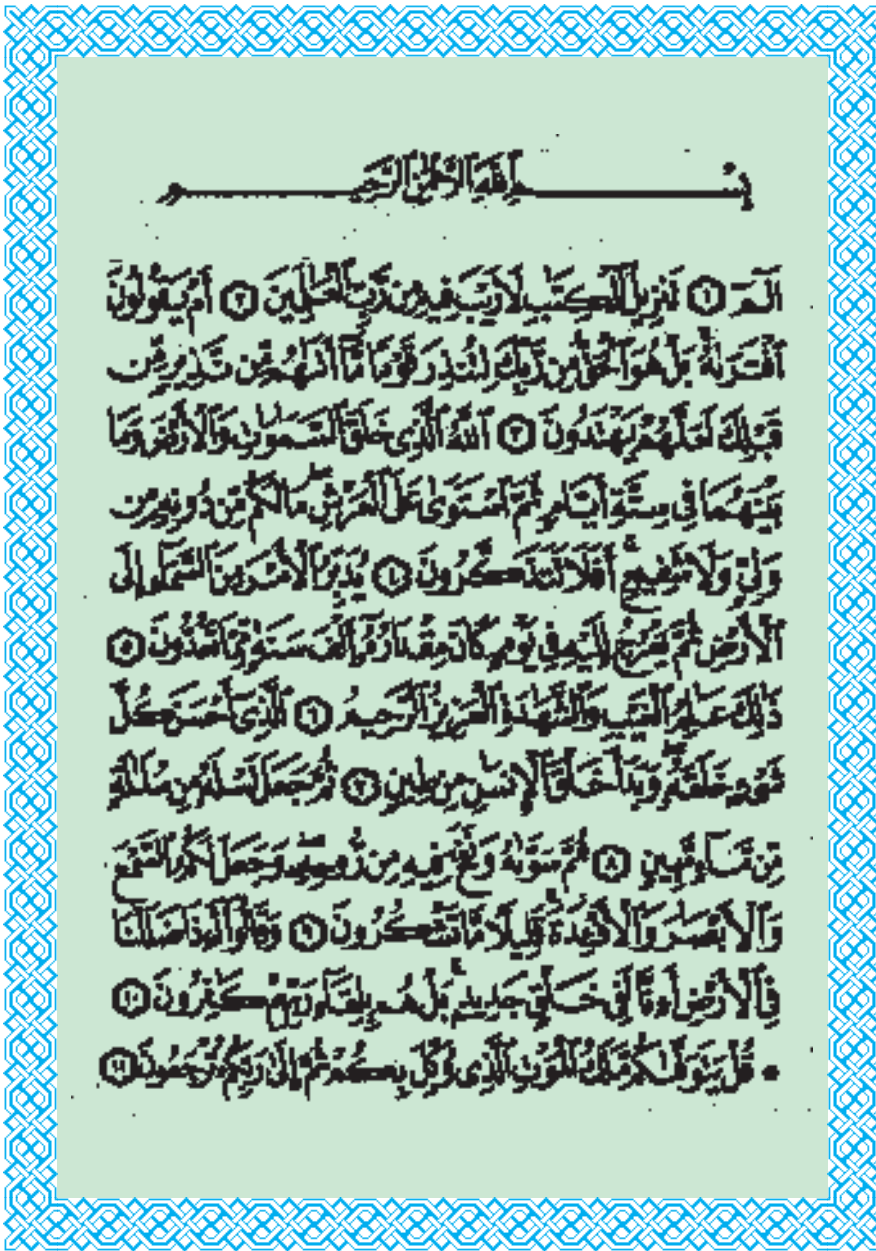 بِسْمِ اللَّهِ الرَّحْمَٰنِ الرَّحِيمِ
الٓمٓ ١ تَنزِيلُ ٱلْكِتَٰبِ لَا رَيْبَ فِيهِ مِن رَّبِّ ٱلْعَٰلَمِينَ ٢ أَمْ يَقُولُونَ
ٱفْتَرَىٰهُ ۚ بَلْ هُوَ ٱلْحَقُّ مِن رَّبِّكَ لِتُنذِرَ قَوْمًا مَّآ أَتَىٰهُم مِّن نَّذِيرٍ مِّن
قَبْلِكَ لَعَلَّهُمْ يَهْتَدُونَ ٣ ٱللَّهُ ٱلَّذِى خَلَقَ ٱلسَّمَٰوَٰتِ وَٱلْأَرْضَ وَمَا
بَيْنَهُمَا فِى سِتَّةِ أَيَّامٍ ثُمَّ ٱسْتَوَىٰ عَلَى ٱلْعَرْشِ ۖ مَا لَكُم مِّن دُونِهِۦ مِن
وَلِىٍّ وَلَا شَفِيعٍ ۚ أَفَلَا تَتَذَكَّرُونَ ٤ يُدَبِّرُ ٱلْأَمْرَ مِنَ ٱلسَّمَآءِ إِلَى
ٱلْأَرْضِ ثُمَّ يَعْرُجُ إِلَيْهِ فِى يَوْمٍ كَانَ مِقْدَارُهُۥٓ أَلْفَ سَنَةٍ مِّمَّا تَعُدُّونَ ٥
ذَٰلِكَ عَٰلِمُ ٱلْغَيْبِ وَٱلشَّهَٰدَةِ ٱلْعَزِيزُ ٱلرَّحِيمُ ٦ ٱلَّذِىٓ أَحْسَنَ كُلَّ
شَىْءٍ خَلَقَهُۥ ۖ وَبَدَأَ خَلْقَ ٱلْإِنسَٰنِ مِن طِينٍ ٧ ثُمَّ جَعَلَ نَسْلَهُۥ مِن سُلَٰلَةٍ
مِّن مَّآءٍ مَّهِينٍ ٨ ثُمَّ سَوَّىٰهُ وَنَفَخَ فِيهِ مِن رُّوحِهِۦ ۖ وَجَعَلَ لَكُمُ ٱلسَّمْعَ
وَٱلْأَبْصَٰرَ وَٱلْأَفْـِٔدَةَ ۚ قَلِيلًا مَّا تَشْكُرُونَ ٩ وَقَالُوٓا۟ أَءِذَا ضَلَلْنَا
فِى ٱلْأَرْضِ أَءِنَّا لَفِى خَلْقٍ جَدِيدٍۭ ۚ بَلْ هُم بِلِقَآءِ رَبِّهِمْ كَٰفِرُونَ ١٠
۞ قُلْ يَتَوَفَّىٰكُم مَّلَكُ ٱلْمَوْتِ ٱلَّذِى وُكِّلَ بِكُمْ ثُمَّ إِلَىٰ رَبِّكُمْ تُرْجَعُونَ ١١